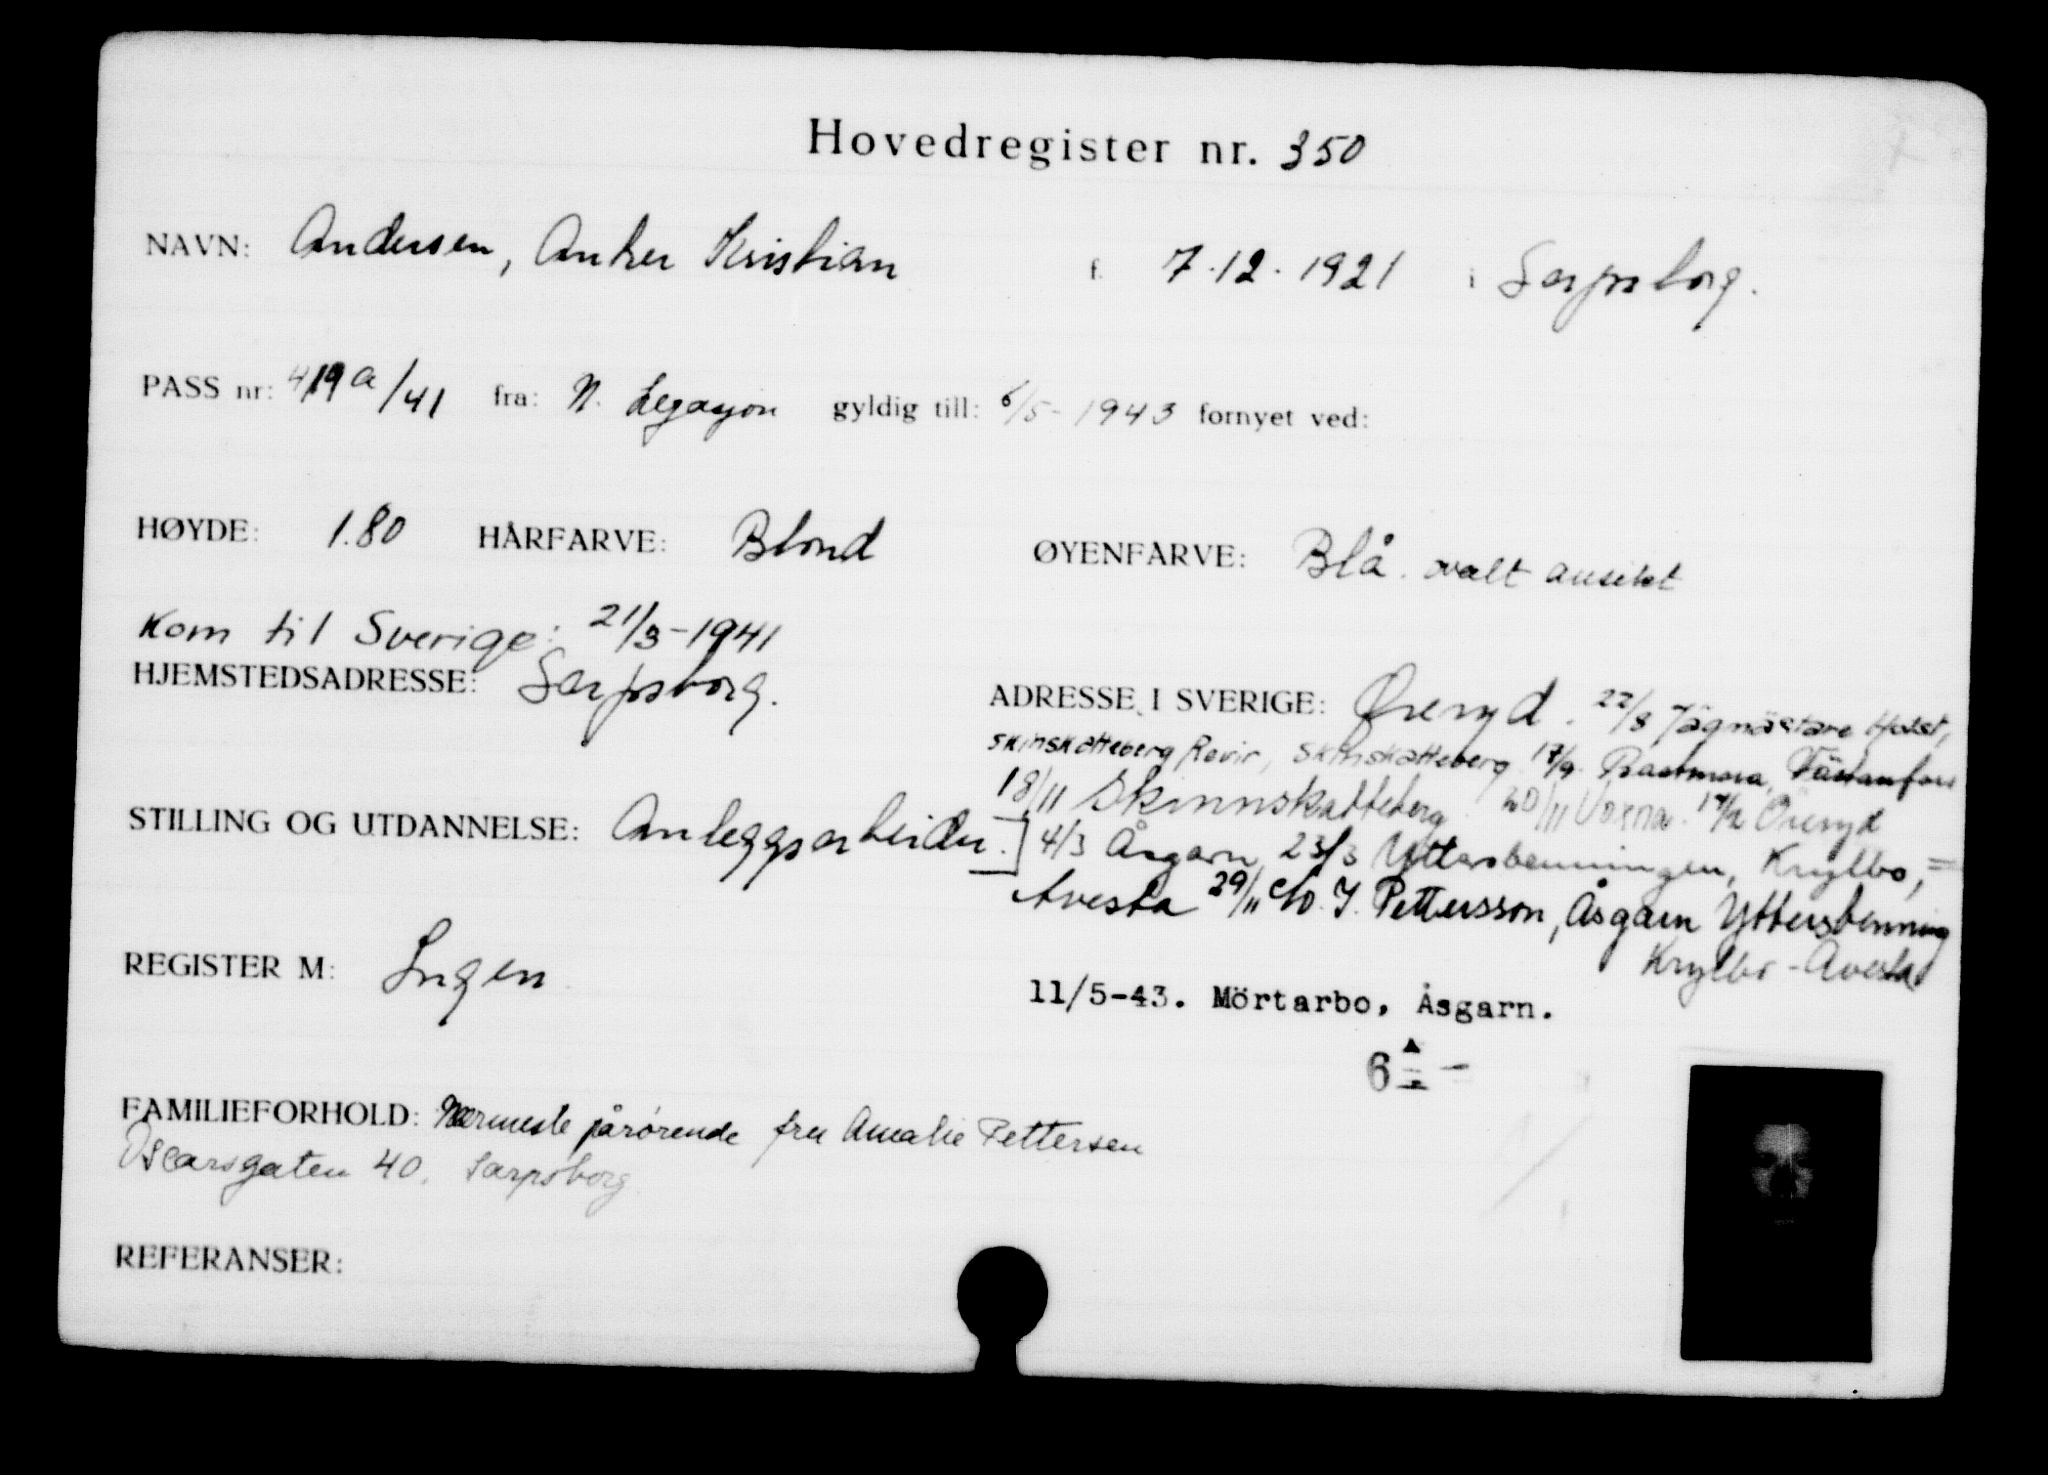 Hovedregister nr. 350
NAVN: Andersen, Anker Kristian f. 7.12.1921 i Sarpsborg.
PASS nr: 419a/41 fra: N. Legasjon gyldig till: 6/5-1943 fornyet ved:
HØYDE: 1.80 HÅRFARVE: Blond ØYENFARVE: Blå. ovalt ansikt
Kom til Sverige: 21/3-1941
HJEMSTEDSADRESSE: Sarpsborg.
ADRESSE I SVERIGE: Øreryd. 22/8 Jägmästare Holst,
Skinskatteberg Revir, Skinskatteberg 17/9 Bastmora, Västanfors
18/11 Skinnskatteberg 20/11 Voxna. Öreryd
STILLING OG UTDANNELSE: Anleggsarbeider.
4/3 Åsgarn 23/3 Yttersbenningen, Krylbo,
Avesta 29/11 c/o. J. Pettersson, Åsgarn Yttersbenning
Krylbo - Avesta
REGISTER M: Ingen
11/5-43. Mörtarbo, Åsgarn.
6
FAMILIEFORHOLD: Nærmeste pårørende fru Amalie Pettersen
Oscarsgaten 40. Sarpsborg.
REFERANSER: